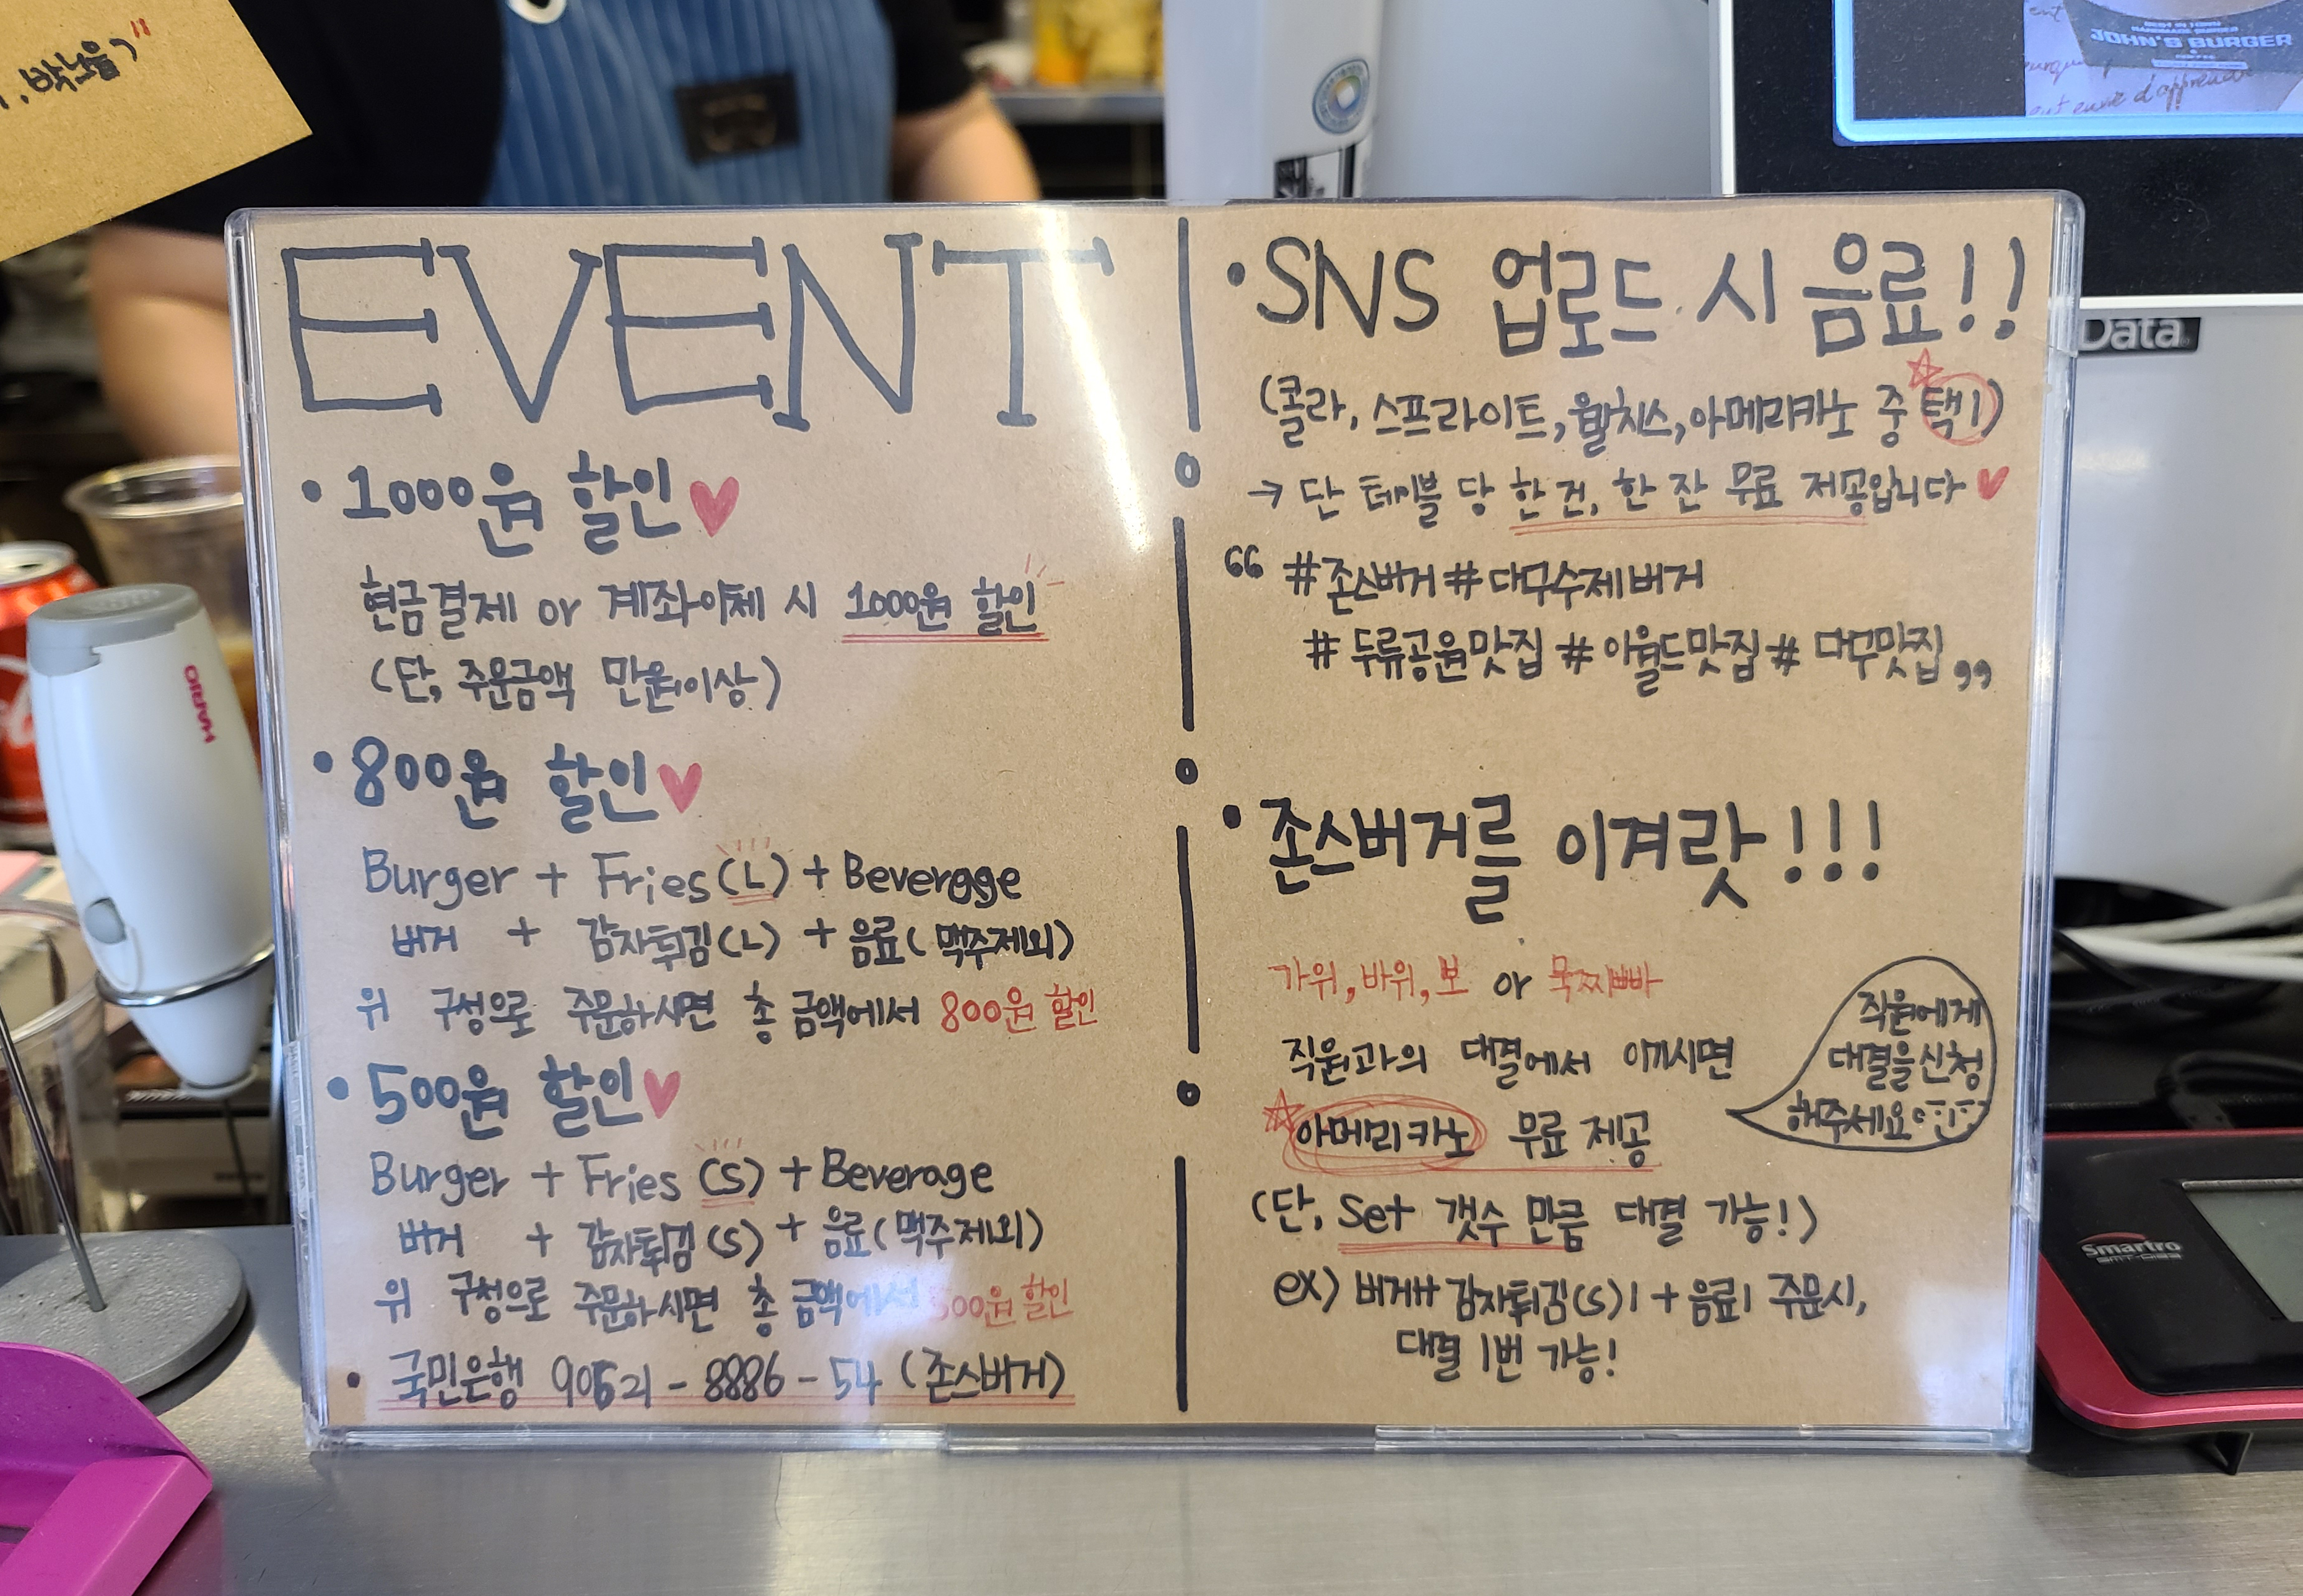 박노을)"
JOHN'S BURGER
Data
EVENT
• 1000원 할인♥
현금결제 or 계좌이체 시 1000원 할인
(단, 주문금액 만원이상)
• 800원 할인♥
Burger + Fries (L) + Beverage
버거 + 감자튀김(L) + 음료(맥주제외)
위 구성으로 주문하시면 총 금액에서 800원 할인
• 500원 할인♥
Burger + Fries (S) + Beverage
버거 + 감자튀김(S) + 음료(맥주제외)
위 구성으로 주문하시면 총 금액에서 500원 할인
• 국민은행 90521-8886-54 (존스버거)
• SNS 업로드 시 음료!!
(콜라, 스프라이트, 웰치스, 아메리카노 중 택1)
→ 단 테이블 당 한 건, 한 잔 무료 제공입니다♥
“ #존스버거 #대구수제버거
#두류공원맛집 #이월드맛집 #대구맛집 ”
• 존스버거를 이겨랏!!!
가위, 바위, 보 or 묵찌빠
직원과의 대결에서 이기시면
☆아메리카노 무료 제공
(단, Set 갯수 만큼 대결 가능!)
ex) 버거1+감자튀김(S)1+음료1 주문시,
대결 1번 가능!
직원에게
대결을 신청
해주세요
ORMA
Smartro